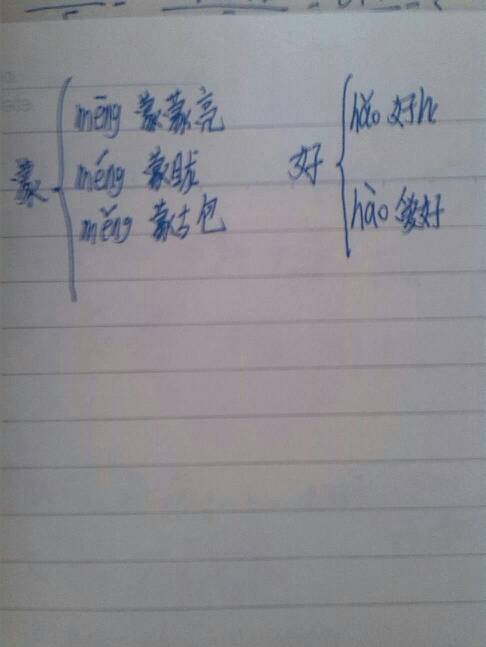 蒙
mēng 蒙蒙亮
méng 蒙眬
měng 蒙古包
好
hǎo 好比
hào 爱好